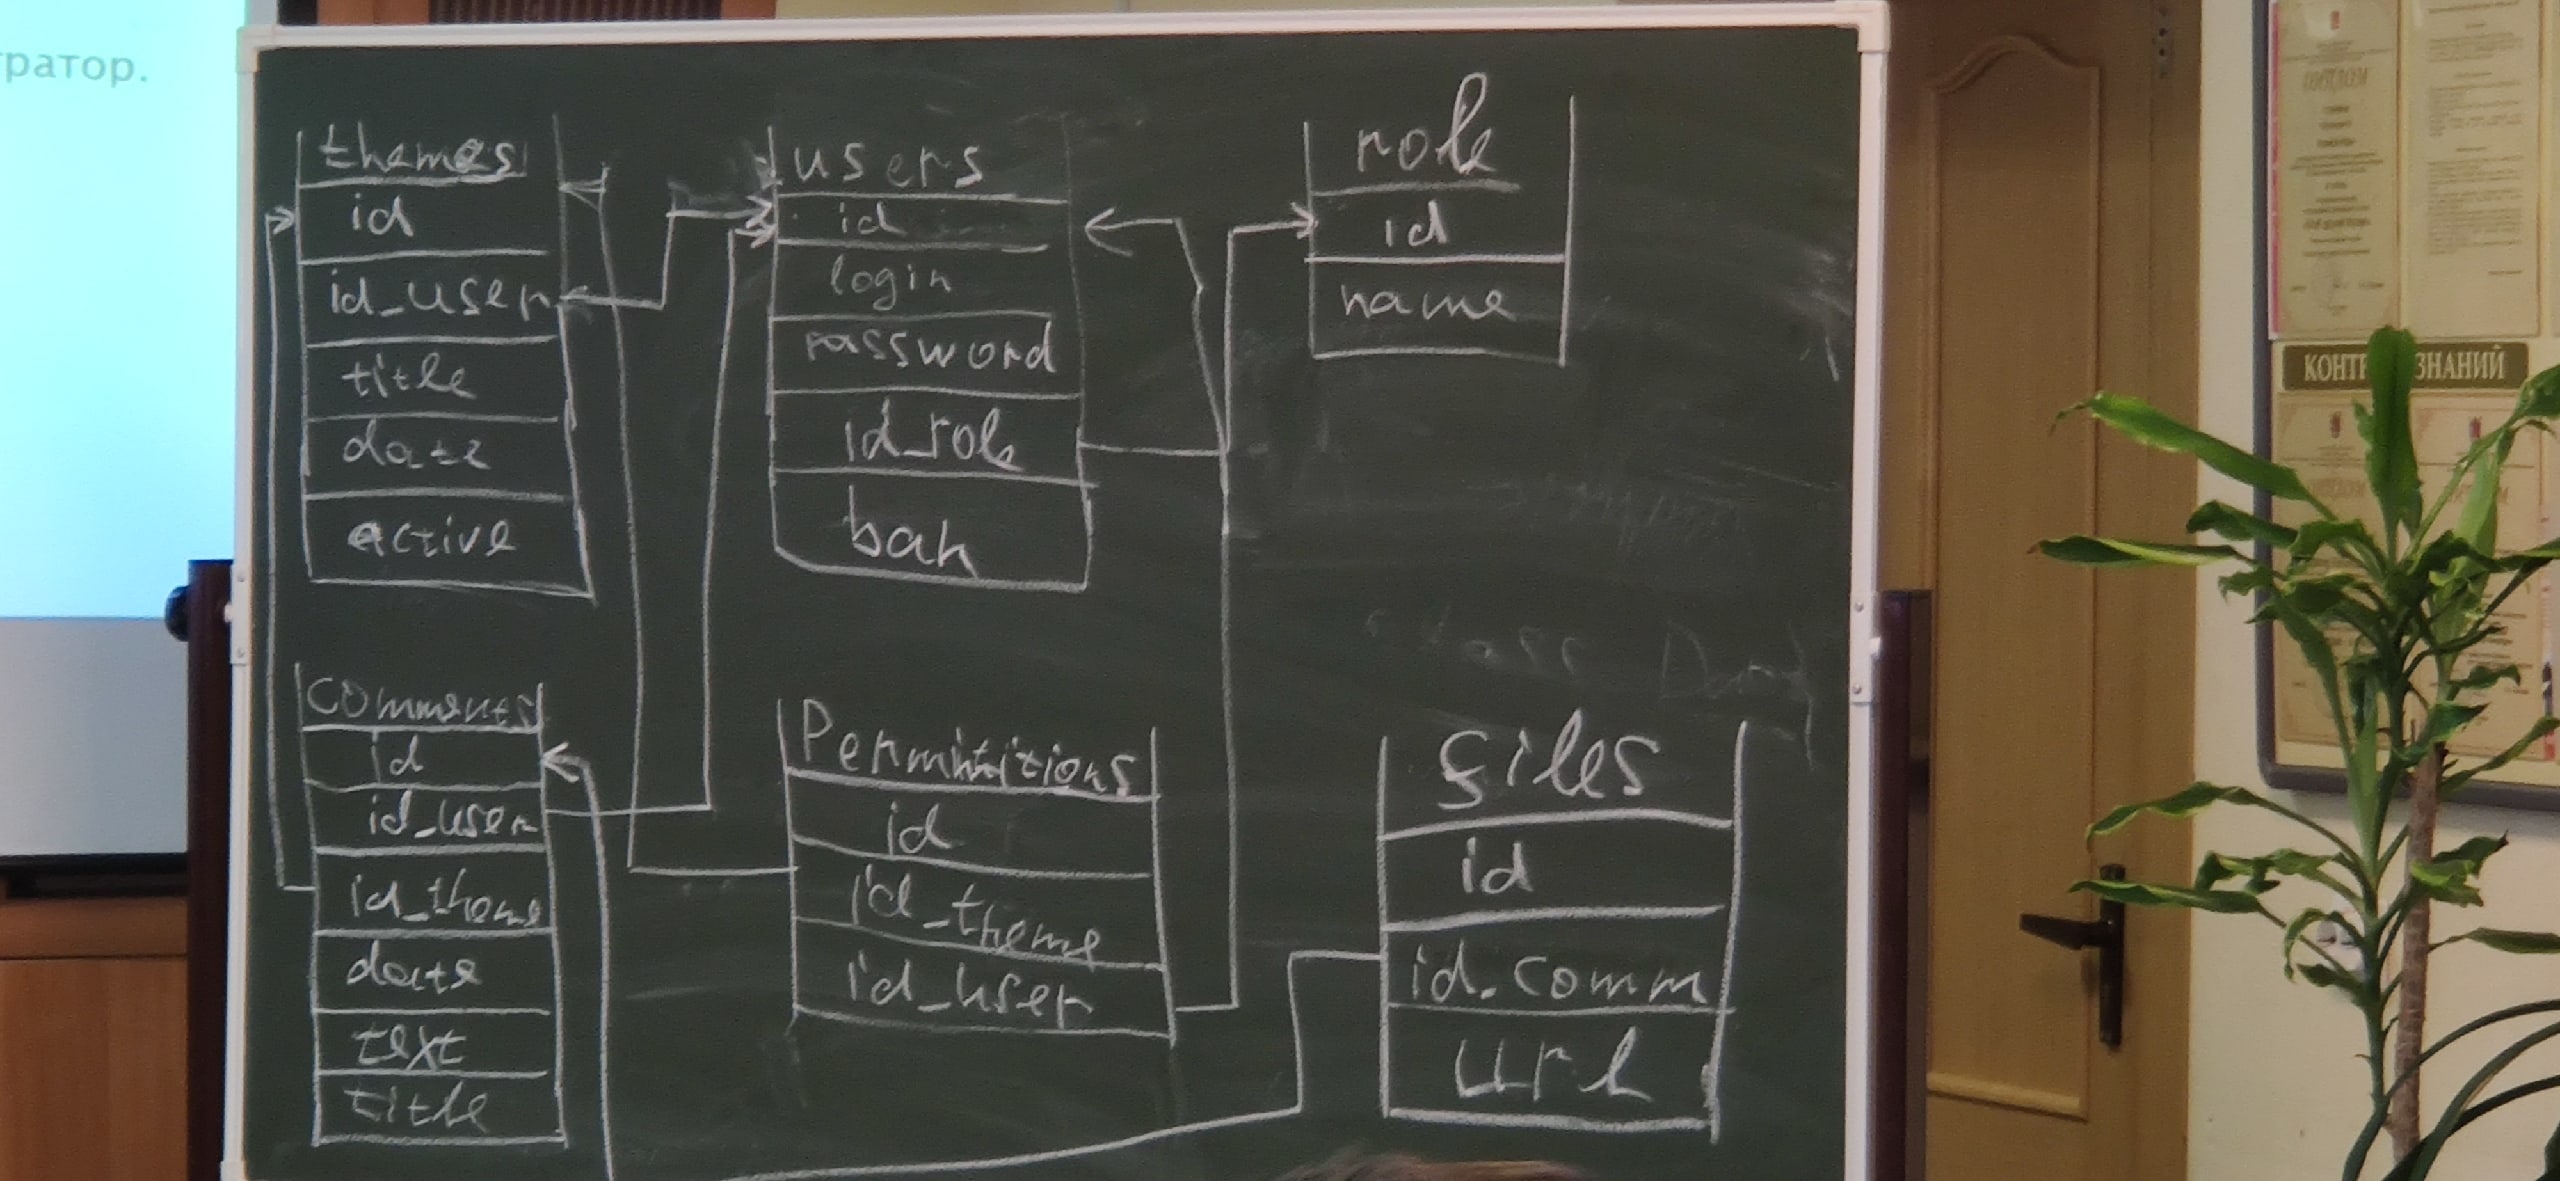 тратор.
themes
id
id_user
title
date
active
users
id
login
password
id_role
ban
role
id
name
comments
id
id_user
id_theme
date
text
title
Permititions
id
id_theme
id_user
files
id
id_comm
url
ЗНАНИЙ